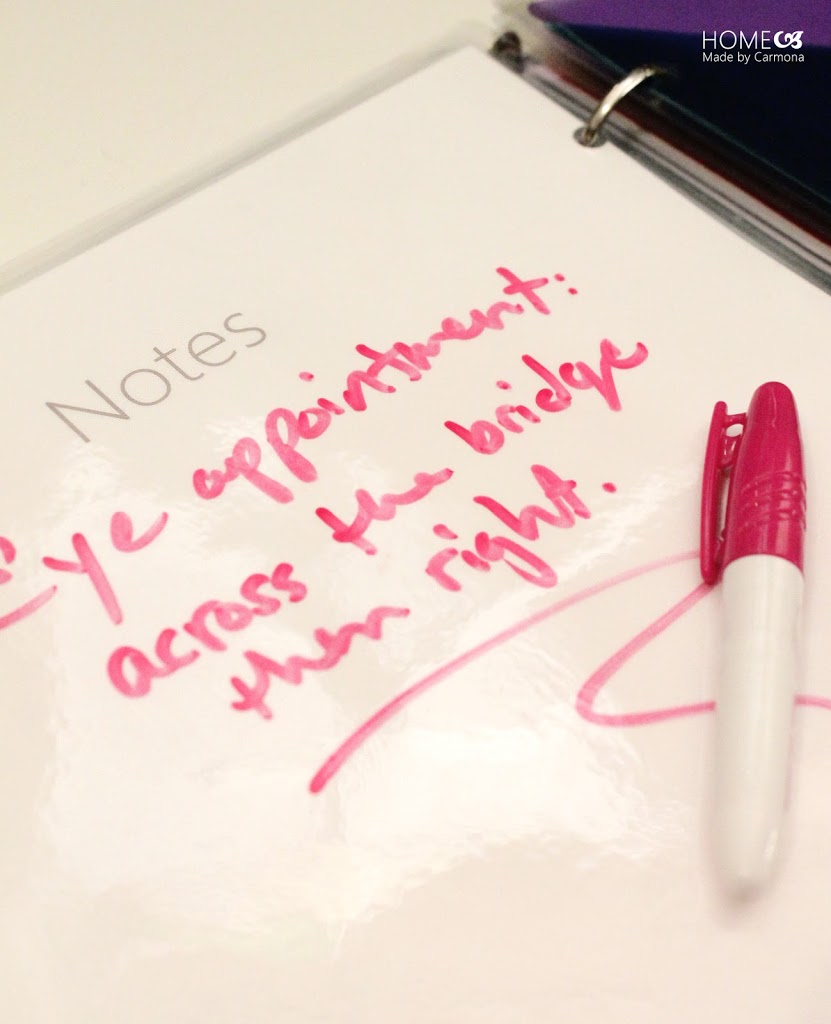 HOME
Made by Carmona
Notes
Eye appointment:
across the bridge
then right.